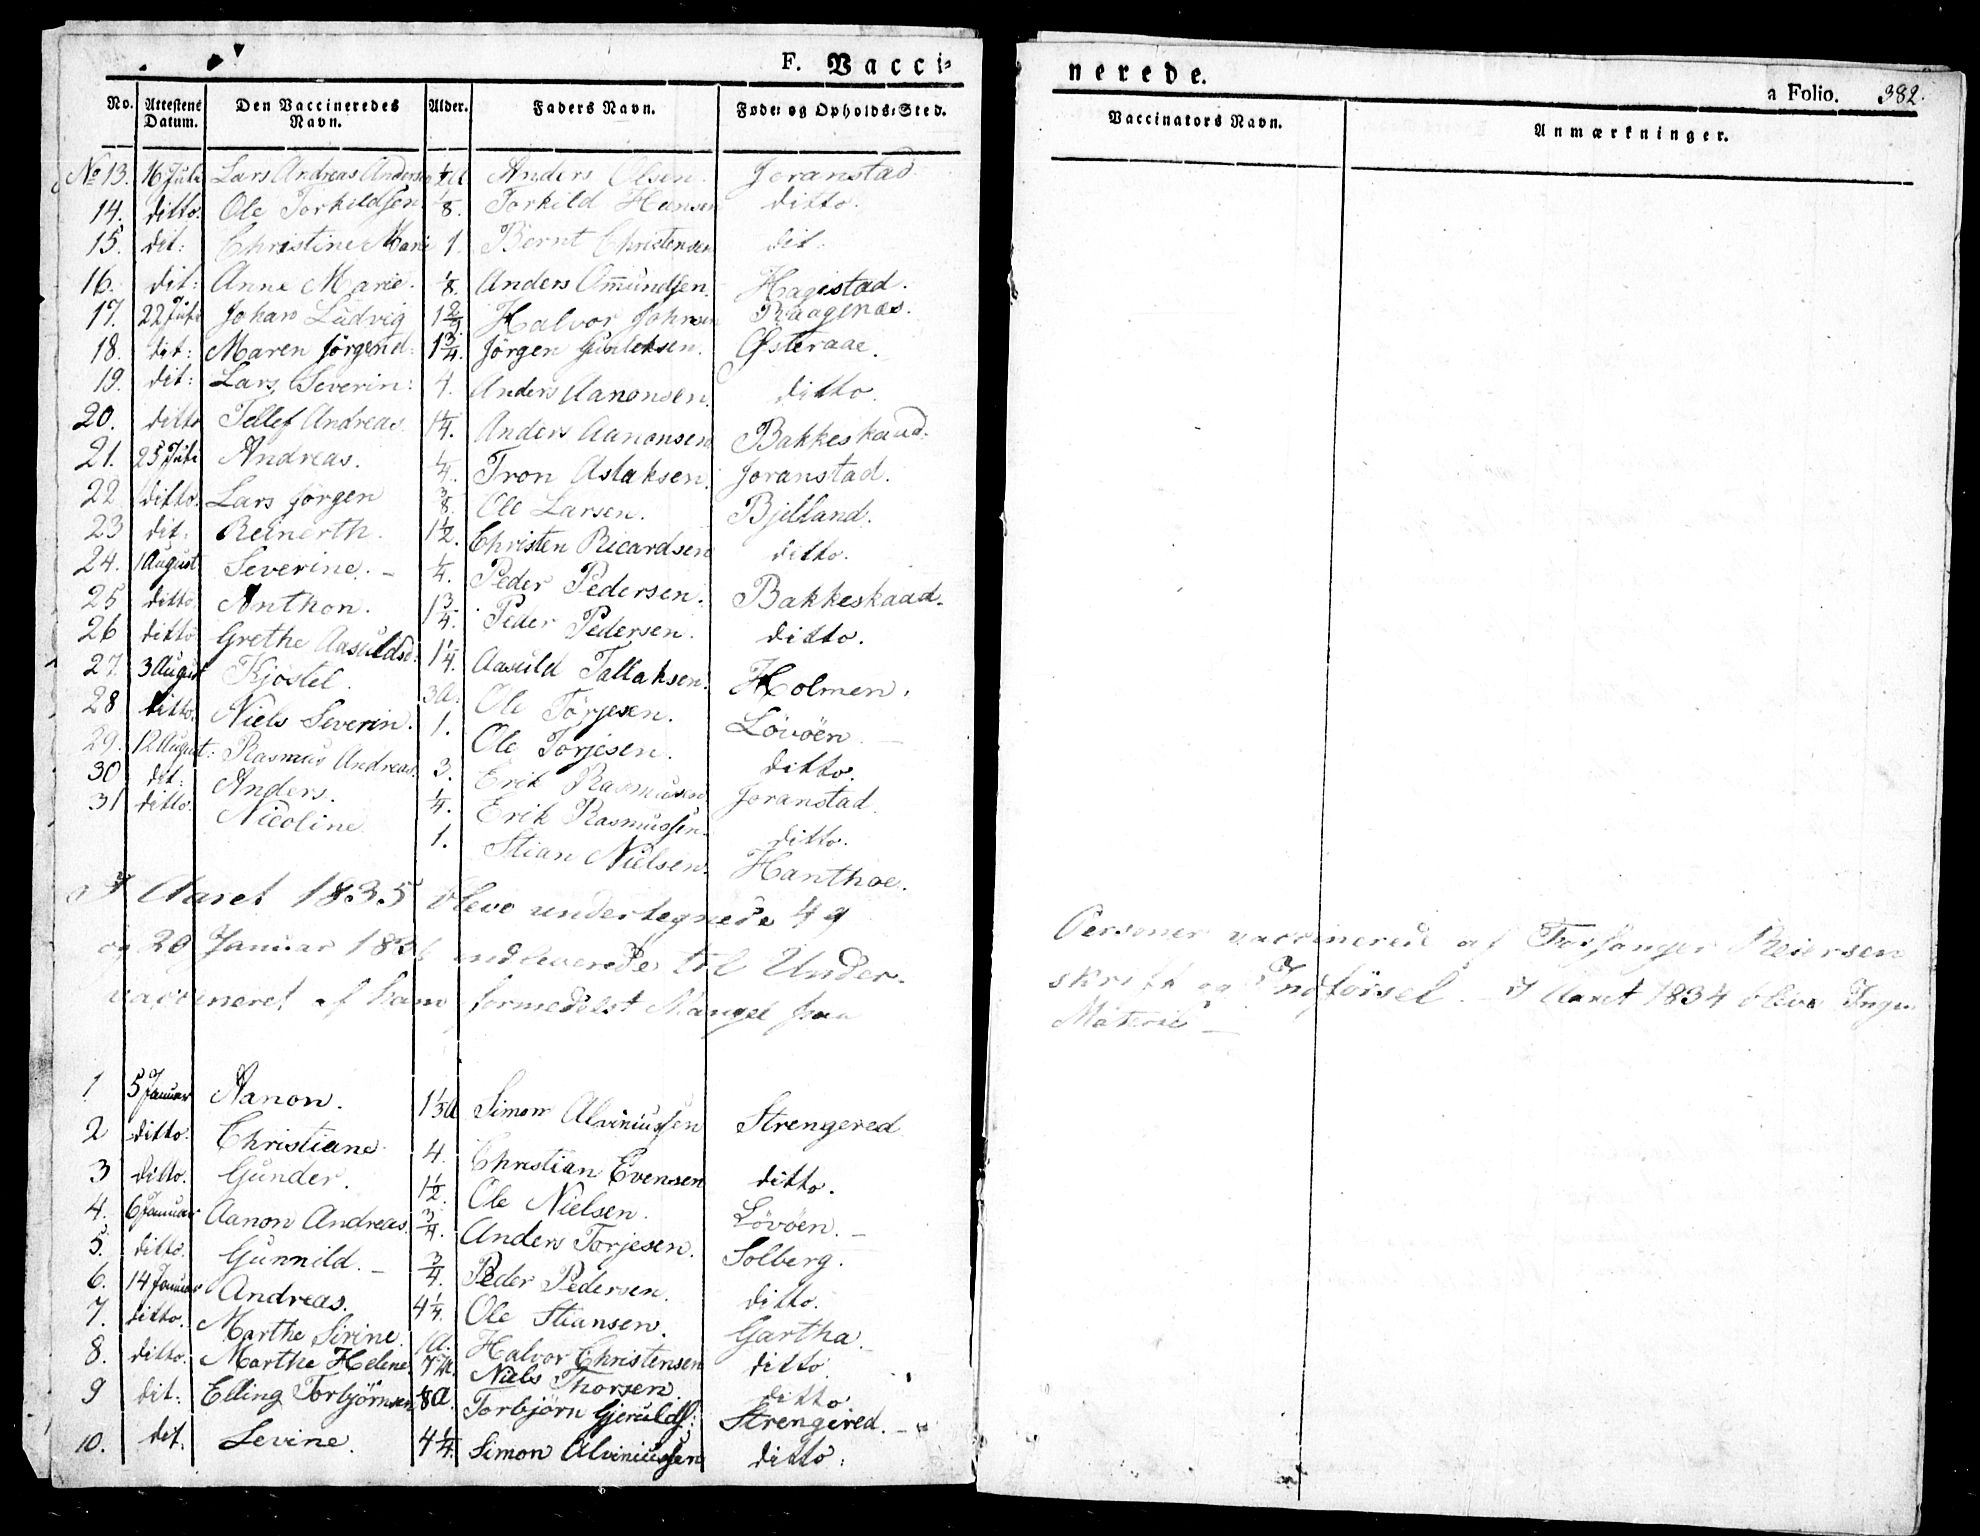 F. Vacci=
nerede.
a Folio. 382.
No. | Attestens Datum. | Den Vaccineredes Navn. | Alder. | Faders Navn. | Føde= og Opholds=Sted. | Vaccinators Navn. | Anmærkninger.
No 13. 16 Juli Lars Andreas Anders Olsen. Joranstad
14. ditto. Ole Torkildsen 1/8. Torkild Hansen ditto.
15. dit: Christine Marie 1. Bernt Christensen dit:
16. dit: Anne Marie. 1/8. Anders Amundsen. Hagestad.
17. 22 Juli Johan Ludvig 1 2/3. Halvor Johnsen Raagenæs.
18. dit: Maren Jörgend: 1 3/4. Jörgen Gunleksen. Østeraae.
19. dit: Lars Severin: 4. Anders Aanonsen. ditto.
20. ditto Tellef Andreas. 1/4. Anders Aanonsen Bakkeskaad.
21. 25 Juli Andreas. 1/4. Tron Aslaksen. Joranstad.
22 ditto. Lars Jörgen 3/8. Ole Larsen. Bjelland.
23 dit: Reinerth. 1 1/2. Christen Ricardsen ditto.
24. 1 August Severine. — 1/4. Peder Pedersen. Bakkeskaad.
25 ditto. Anthon. 1 3/4. Peder Pedersen. ditto.
26 ditto Grethe Aasuldsd: 1 1/4. Aasuld Tallaksen. Holmen.
27. 3 August Kjöstel. 3 A. Ole Törjesen. Lövöen. —
28 ditto. Niels Severin. 1. Ole Torjesen. ditto.
29. 12 August. Rasmus Andreas. 3. Erik Rasmussen Joranstad.
30 dit: Anders. 1/4. Erik Rasmussen. ditto.
31 ditto. Nicoline 1. Stian Nielsen. Hanthoe.
I Aaret 1835 bleve undertegnede 49 Personer vaccinerede af Forsanger Reiersen
og 29 Januar 1836 indleverede til Under- skrift og Indförsel. — I Aaret 1834 bleve Ingen
vaccineret af ham formedelst Mangel paa Materie —
1 5 Januar Aanon. 1 1/3 A Simon Alviniussen Strengered
2 ditto. Christiane. 4. Christian Evensen ditto.
3 ditto. Gunder. 1 1/2. Ole Nielsen. Lövöen. —
4. 6 Januar Aanon Andreas. 3/4. Anders Torjesen. Solberg.
5. ditto. Gunnild. — 3/4. Peder Pedersen. ditto.
6. 14 Januar Andreas. 4 1/4. Ole Stiansen. Gartha. —
7. ditto. Marthe Sirine. Halvor Christensen ditto
8. ditto. Marthe Helene. Niels Thorsen. ditto.
9 dit: Elling Torbjörnsen 1/8 A. Torbjörn Gjeruldss: Strengered. —
10. dit. Sevine. 4 1/4. Simon Alviniussen ditto.